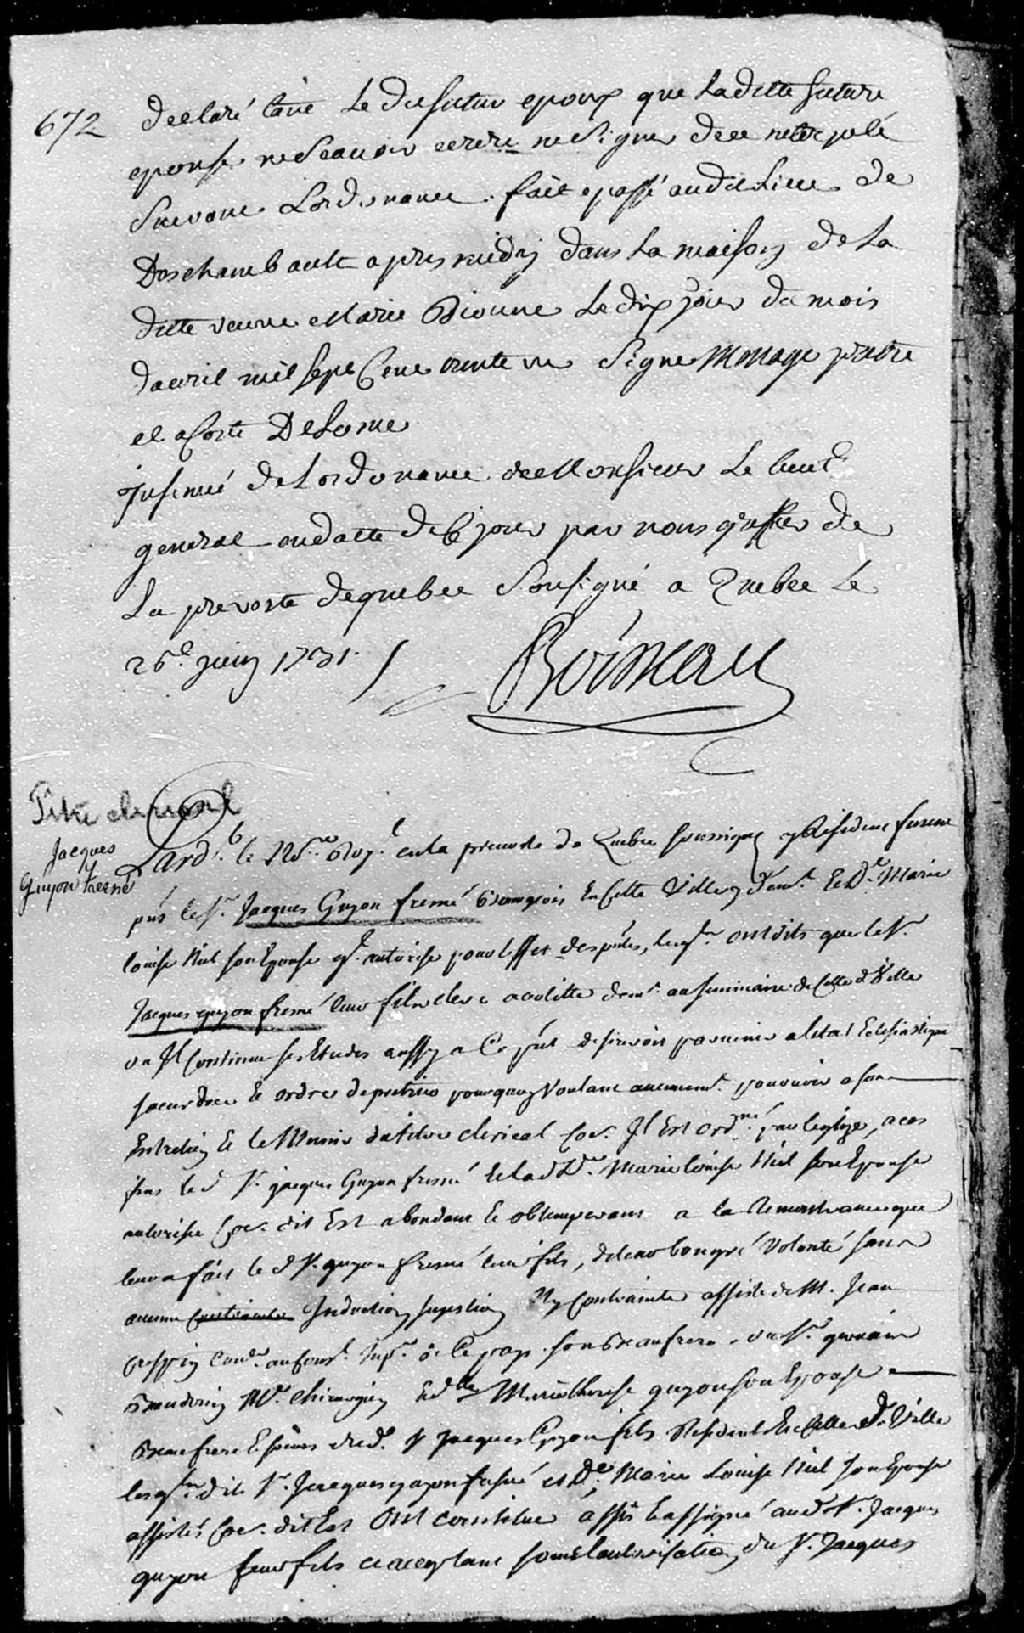 672
declaré tant Le d. futur epoux que Laditte future
epouse ne Scavoir ecrire ne Signer de ce interpelé
Suivant Lordonance. fait e passé audit Lieu de
Deschambault apres midy dans La maison de La
ditte veuve Marie Dionne Le dix jour du mois
davril mil sept Cent trente un Signe Menage pretre
et a Coste Delorme
Insinué de Lordonance de Monsieur Le lieut
general en datte de ce jour par nous greffier de
La prevosté de quebec Sousigné a Quebec Le
26e juin 1731 /
Boisseau
Titre clerical
Jacques
Guyon fresné
Pard. le Nore Roy. en la prevosté de Quebec soussigné y Résident furent
pnts le Sr. Jacques Guyon fresné Bourgeois En Cette Ville y demt. & De. Marie
louise Niel son Epouse qil autorise pour Leffet des pntes, lesqls. ont dits que le Sr.
Jacques guyon fresné leur fils clerc acolitte demt. au seminaire de Cette d. Ville
ou Il Continue ses Etudes aussy a Ce pnt desireroit parvenir a letat Eclesiastique
sacerdoce & ordres de pretrise pourquoy Voulant aucunemt. pourvoir a son
Entretien & le Munir du titre clerical Coe. Il Est ordné par leglise, a ces
fins le d Sr. jacques Guyon fresné & lad De. Marie louise Niel son Epouse
autorisée Coe. dit Est abondant & obtemperans a la Remontrance que
leur a fait le d Sr. guyon fresné leur fils, de leur bon gré Volonté sans
aucune Induction sugestion Ny Contrainte assisté de M. Jean
Crespin Conr. au Consl. Supr. de Ce pays son Beaufrere du Sr. gervais
Beaudoin Me. chirurgien & dlle Marie therese guyon son Epouse
Beaufrere & soeur dud. Sr Jacques Guyon fils Residents En Cette d. Ville
lesqls d. Sr. Jacques guyon fresné et De. Marie Louise Niel son Epouse
assistés Coe. dit Est ont constitué assis & assigné aud. Sr. Jacques
guyon leur fils ce acceptant sous lautorisation du Sr. Jacques